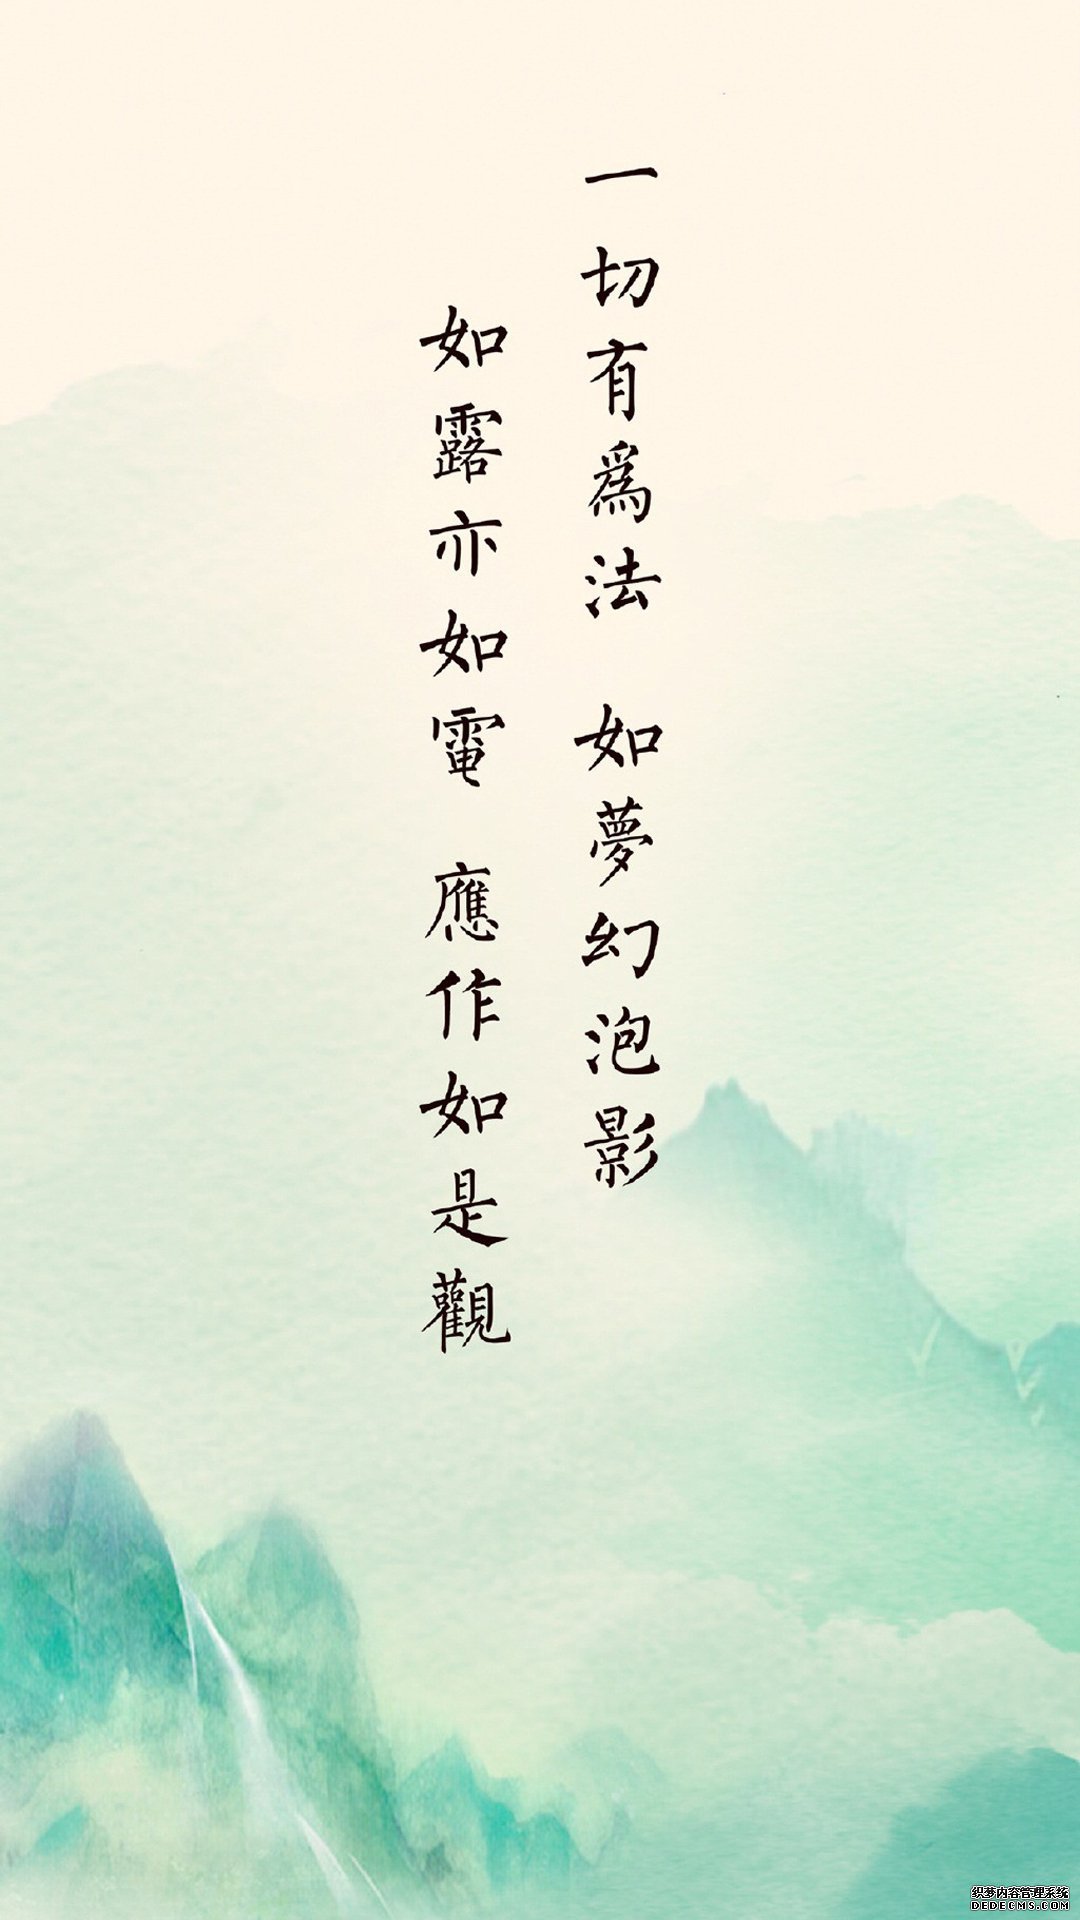 一切有爲法 如夢幻泡影
如露亦如電 應作如是觀
织梦内容管理系统
DEDECMS.COM